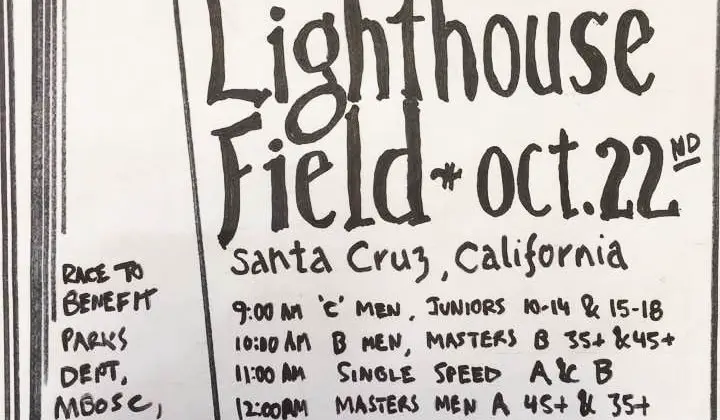 Lighthouse
Field * oct. 22ND
Santa Cruz, California
RACE TO
BENEFIT
PARKS
DEPT,
MBOSC,
9:00 AM 'C' MEN, JUNIORS 10-14 & 15-18
10:00 AM B MEN, MASTERS B 35+ & 45+
11:00 AM SINGLE SPEED A & B
12:00PM MASTERS MEN A 45+ & 35+